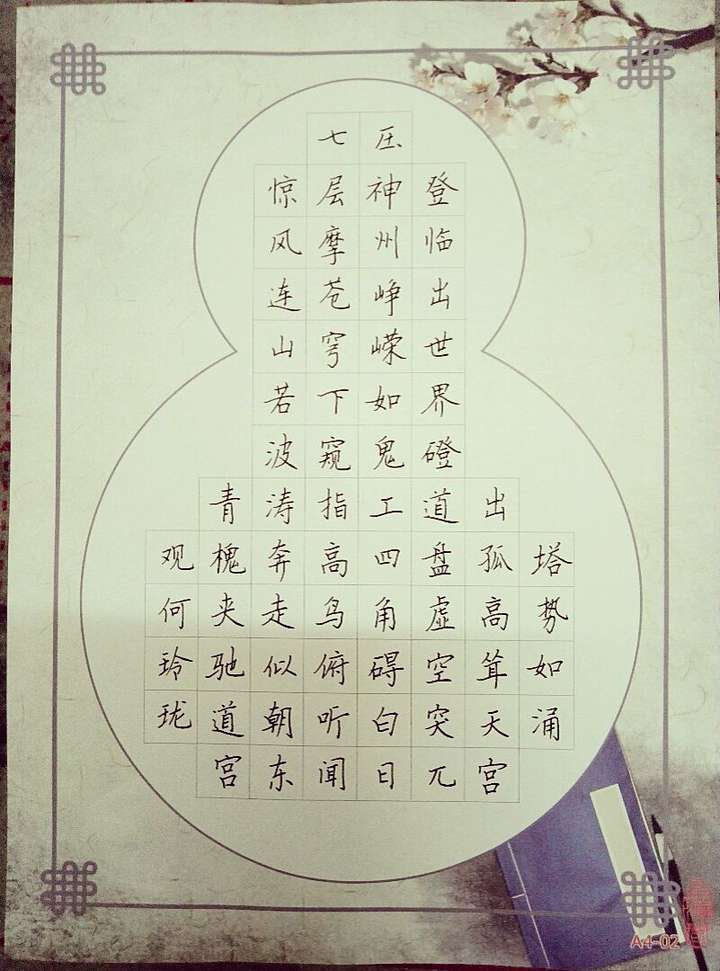 塔势如涌
出孤高耸天宫
登临出世界磴道盘虚空突兀
压神州峥嵘如鬼工四角碍白日
七层摩苍穹下窥指高鸟俯听闻
惊风连山若波涛奔走似朝东
青槐夹驰道宫
观何玲珑
A4-02